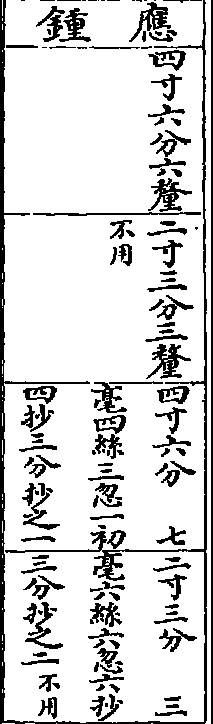 應鍾
四寸六分六釐
二寸三分三釐
不用
四寸六分 七
毫四絲三忽一初
四抄三分抄之一
二寸三分 三
毫六絲六忽六抄
三分抄之二 不用